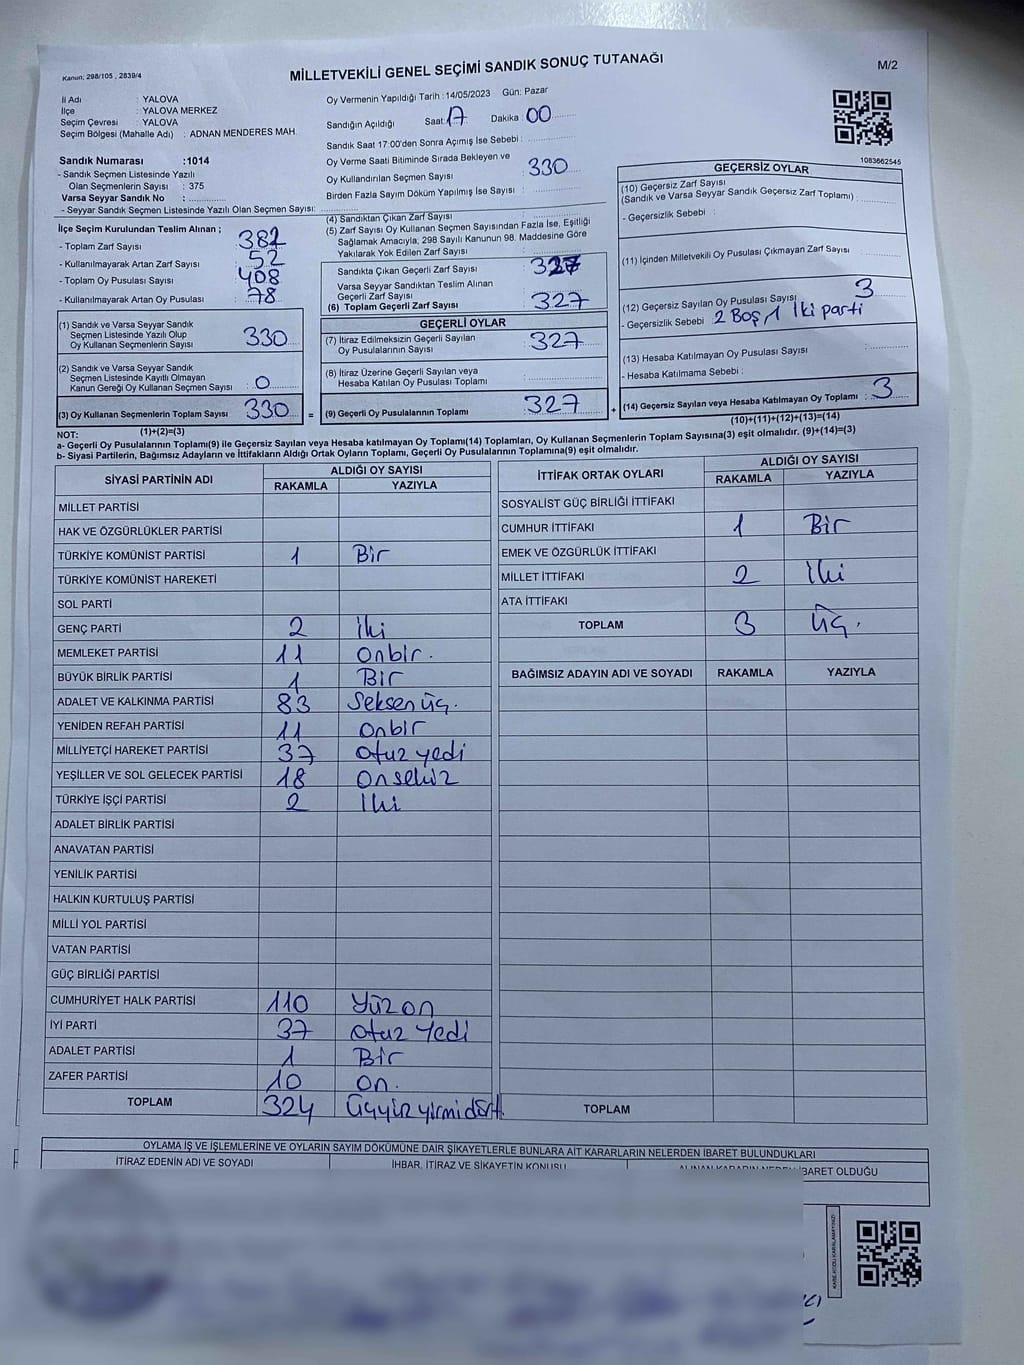 Kanun: 298/105 , 2839/4
MİLLETVEKİLİ GENEL SEÇİMİ SANDIK SONUÇ TUTANAĞI
M/2
İl Adı : YALOVA
İlçe : YALOVA MERKEZ
Seçim Çevresi : YALOVA
Seçim Bölgesi (Mahalle Adı) : ADNAN MENDERES MAH.
Sandık Numarası :1014
- Sandık Seçmen Listesinde Yazılı
Olan Seçmenlerin Sayısı : 375
Varsa Seyyar Sandık No :
- Seyyar Sandık Seçmen Listesinde Yazılı Olan Seçmen Sayısı:
İlçe Seçim Kurulundan Teslim Alınan ;
- Toplam Zarf Sayısı : 382
- Kullanılmayarak Artan Zarf Sayısı : 52
- Toplam Oy Pusulası Sayısı : 408
- Kullanılmayarak Artan Oy Pusulası : 78
(1) Sandık ve Varsa Seyyar Sandık
Seçmen Listesinde Yazılı Olup
Oy Kullanan Seçmenlerin Sayısı : 330
(2) Sandık ve Varsa Seyyar Sandık
Seçmen Listesinde Kayıtlı Olmayan
Kanun Gereği Oy Kullanan Seçmen Sayısı : 0
(3) Oy Kullanan Seçmenlerin Toplam Sayısı : 330
(1)+(2)=(3)
Oy Vermenin Yapıldığı Tarih : 14/05/2023 Gün: Pazar
Sandığın Açıldığı Saat: 17 Dakika : 00
Sandık Saat 17:00'den Sonra Açımış İse Sebebi :
Oy Verme Saati Bitiminde Sırada Bekleyen ve
Oy Kullandırılan Seçmen Sayısı : 330
Birden Fazla Sayım Döküm Yapılmış İse Sayısı :
(4) Sandıktan Çıkan Zarf Sayısı :
(5) Zarf Sayısı Oy Kullanan Seçmen Sayısından Fazla İse, Eşitliği
Sağlamak Amacıyla, 298 Sayılı Kanunun 98. Maddesine Göre
Yakılarak Yok Edilen Zarf Sayısı :
Sandıkta Çıkan Geçerli Zarf Sayısı : 327
Varsa Seyyar Sandıktan Teslim Alınan
Geçerli Zarf Sayısı :
(6) Toplam Geçerli Zarf Sayısı : 327
GEÇERLİ OYLAR
(7) İtiraz Edilmeksizin Geçerli Sayılan
Oy Pusulalarının Sayısı : 327
(8) İtiraz Üzerine Geçerli Sayılan veya
Hesaba Katılan Oy Pusulası Toplamı :
= (9) Geçerli Oy Pusulalarının Toplamı : 327 +
1083662545
GEÇERSİZ OYLAR
(10) Geçersiz Zarf Sayısı
(Sandık ve Varsa Seyyar Sandık Geçersiz Zarf Toplamı) :
- Geçersizlik Sebebi :
(11) İçinden Milletvekili Oy Pusulası Çıkmayan Zarf Sayısı :
(12) Geçersiz Sayılan Oy Pusulası Sayısı : 3
- Geçersizlik Sebebi : 2 Boş, 1 İki parti
(13) Hesaba Katılmayan Oy Pusulası Sayısı :
- Hesaba Katılmama Sebebi :
(14) Geçersiz Sayılan veya Hesaba Katılmayan Oy Toplamı : 3
(10)+(11)+(12)+(13)=(14)
NOT:
a- Geçerli Oy Pusulalarının Toplamı(9) ile Geçersiz Sayılan veya Hesaba katılmayan Oy Toplamı(14) Toplamları, Oy Kullanan Seçmenlerin Toplam Sayısına(3) eşit olmalıdır. (9)+(14)=(3)
b- Siyasi Partilerin, Bağımsız Adayların ve İttifakların Aldığı Ortak Oyların Toplamı, Geçerli Oy Pusulalarının Toplamına(9) eşit olmalıdır.
SİYASİ PARTİNİN ADI ALDIĞI OY SAYISI
RAKAMLA YAZIYLA
MİLLET PARTİSİ
HAK VE ÖZGÜRLÜKLER PARTİSİ
TÜRKİYE KOMÜNİST PARTİSİ 1 Bir
TÜRKİYE KOMÜNİST HAREKETİ
SOL PARTİ
GENÇ PARTİ 2 İki
MEMLEKET PARTİSİ 11 Onbir.
BÜYÜK BİRLİK PARTİSİ 1 Bir
ADALET VE KALKINMA PARTİSİ 83 Seksen üç.
YENİDEN REFAH PARTİSİ 11 Onbir
MİLLİYETÇİ HAREKET PARTİSİ 37 Otuz yedi
YEŞİLLER VE SOL GELECEK PARTİSİ 18 Onsekiz
TÜRKİYE İŞÇİ PARTİSİ 2 İki
ADALET BİRLİK PARTİSİ
ANAVATAN PARTİSİ
YENİLİK PARTİSİ
HALKIN KURTULUŞ PARTİSİ
MİLLİ YOL PARTİSİ
VATAN PARTİSİ
GÜÇ BİRLİĞİ PARTİSİ
CUMHURİYET HALK PARTİSİ 110 Yüz on
İYİ PARTİ 37 Otuz Yedi
ADALET PARTİSİ 1 Bir
ZAFER PARTİSİ 10 On.
TOPLAM 324 Üçyüz yirmi dört.
İTTİFAK ORTAK OYLARI ALDIĞI OY SAYISI
RAKAMLA YAZIYLA
SOSYALİST GÜÇ BİRLİĞİ İTTİFAKI
CUMHUR İTTİFAKI 1 Bir
EMEK VE ÖZGÜRLÜK İTTİFAKI
MİLLET İTTİFAKI 2 İki
ATA İTTİFAKI
TOPLAM 3 Üç.
BAĞIMSIZ ADAYIN ADI VE SOYADI RAKAMLA YAZIYLA
TOPLAM
OYLAMA İŞ VE İŞLEMLERİNE VE OYLARIN SAYIM DÖKÜMÜNE DAİR ŞİKAYETLERLE BUNLARA AİT KARARLARIN NELERDEN İBARET BULUNDUKLARI
İTİRAZ EDENİN ADI VE SOYADI İHBAR, İTİRAZ VE ŞİKAYETİN KONUSU ALINAN KARARIN NEDEN İBARET OLDUĞU
KARE KODU KARALAMAYINIZ!